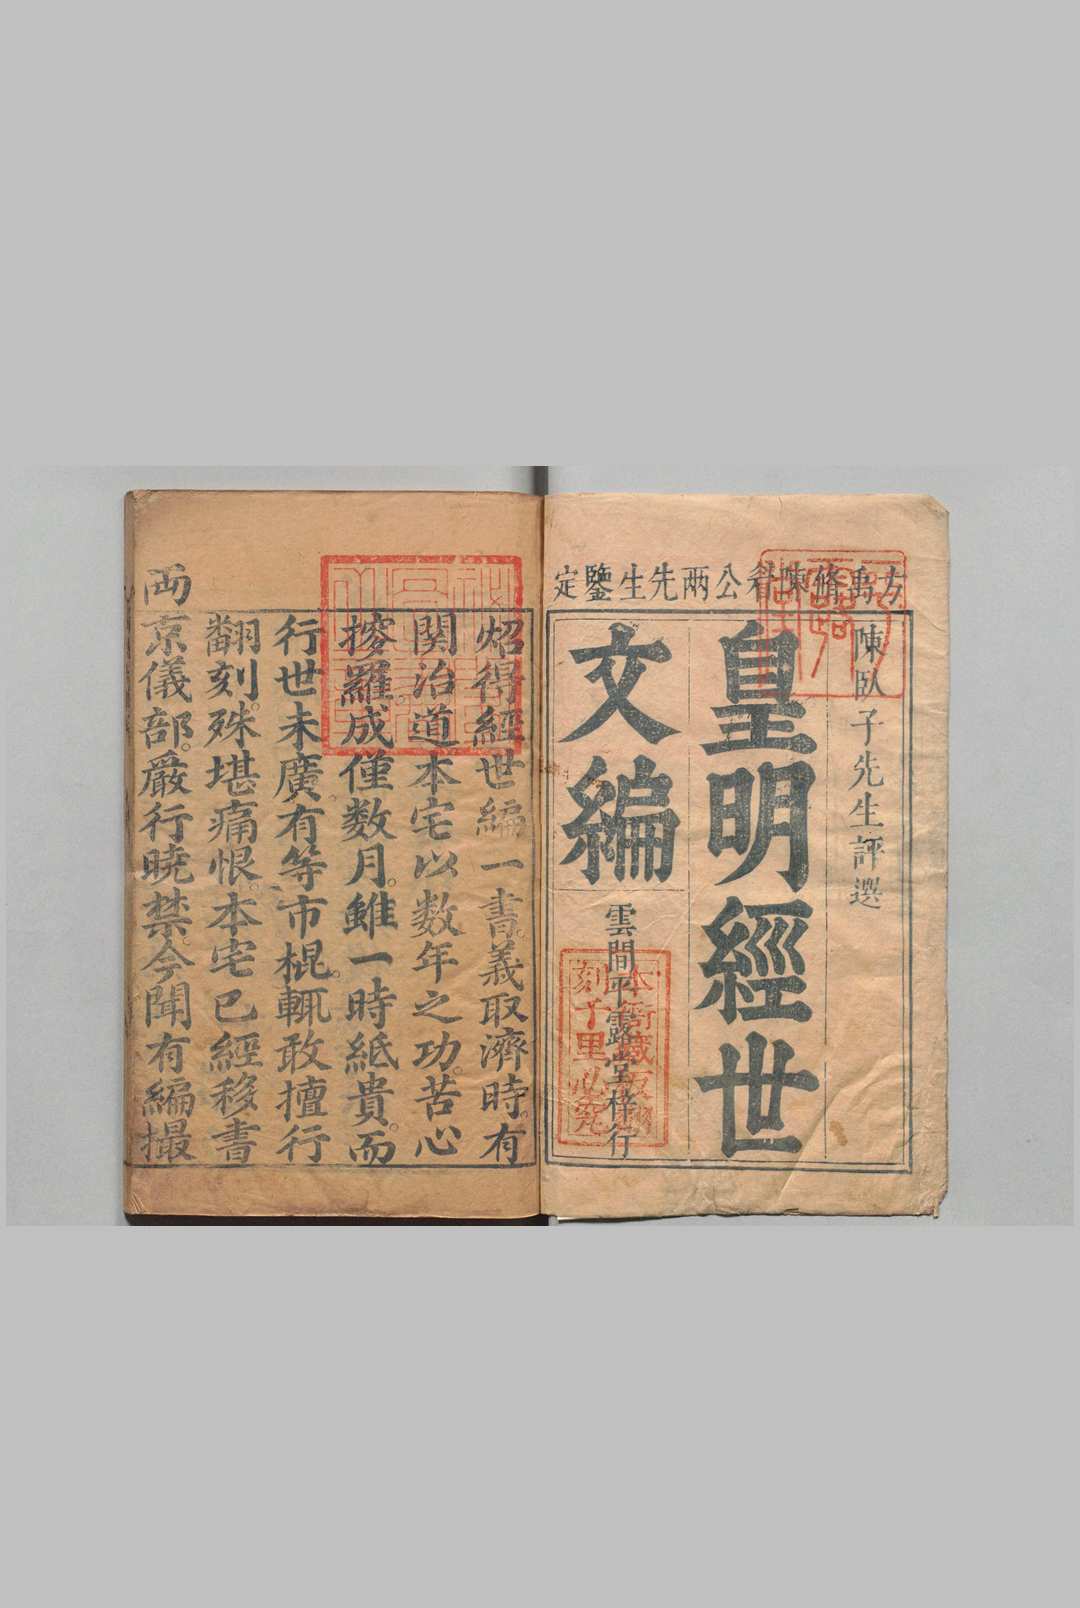 方禹脩陳眉公兩先生鑒定
陳臥子先生評選
皇明經世
文編
雲間平露堂梓行
本衙藏板翻
刻千里必究
炤得經世編一書。義取濟時。有
関治道。本宅以数年之功。苦心
搜羅。成僅数月。雖一時紙貴。而
行世未廣。有等市棍。輒敢擅行
翻刻。殊堪痛恨。本宅已經移書
両京儀部。嚴行曉禁。今聞有編撮